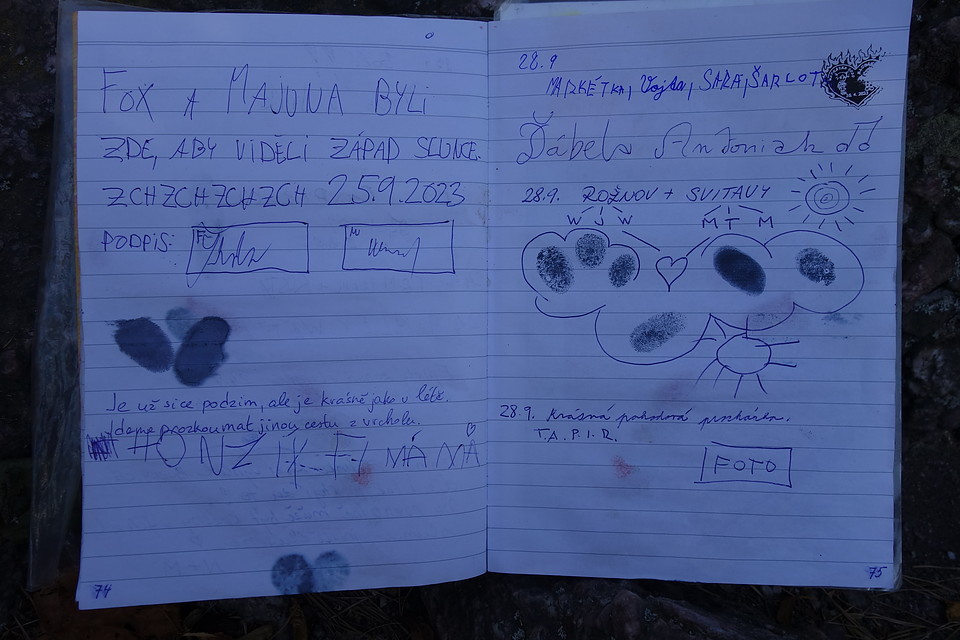 FOX A MAJUNA BYLI
ZDE, ABY VIDĚLI ZÁPAD SLUNCE.
ZCHZCHZCHZCH 25.9.2023
PODPIS:
Je už sice podzim, ale je krásně jako v létě.
Jdeme prozkoumat jinou cestu z vrcholu.
HONZÍK FI MÁMA
74
28.9
MARKÉTKA, Vojta, SARA, ŠARLOTA
Ďábel
28.9. ROŽNOV + SVITAVY
W S W
M T M
28.9. Krásná pohodová procházka.
T.A.P.I.R.
FOTO
75